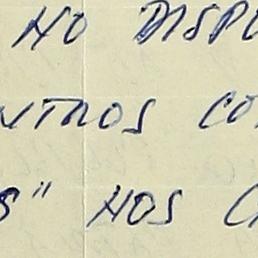 NO DISPO
NTROS CO
S" NOS C